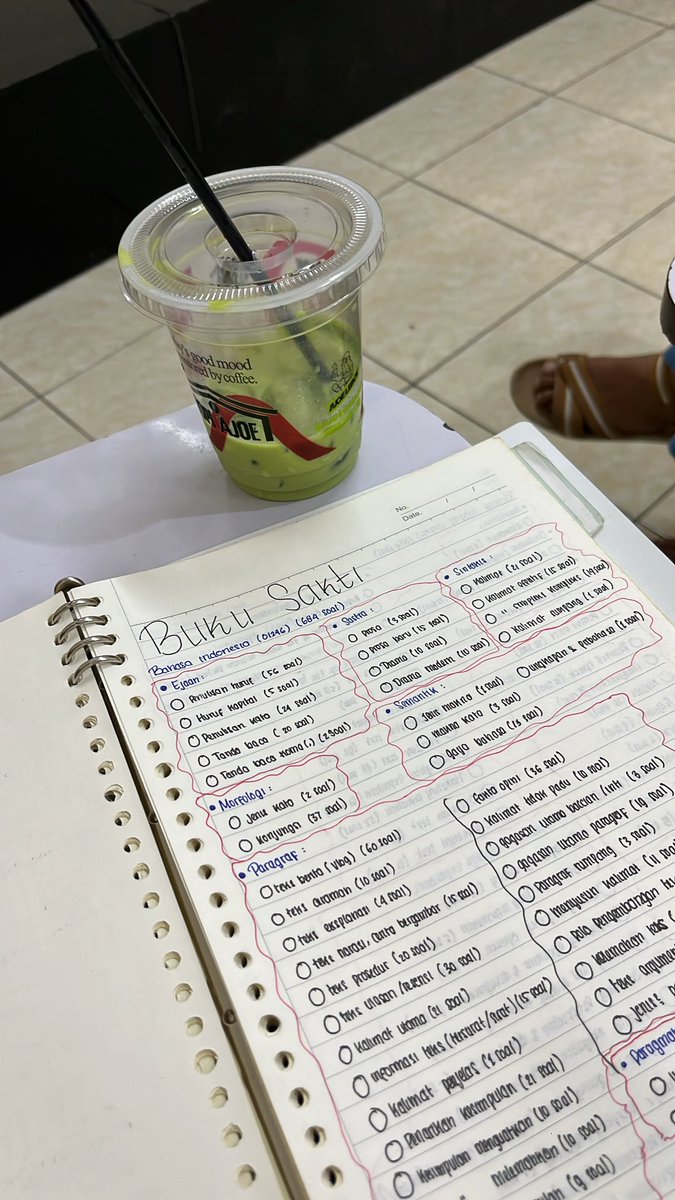 good mood
by coffee.
AJOE
No.
Date.
/ /
Buku Sakti
Bahasa Indonesia (01246) (684 soal)
• Ejaan:
Penulisan huruf (56 soal)
Huruf kapital (5 soal)
Penulisan kata (24 soal)
Tanda baca (20 soal)
Tanda baca koma (,) (29 soal)
• Sastra:
Prosa (3 soal)
Prosa baru (15 soal)
Drama (10 soal)
Drama medern (10 soal)
• Sintaksis:
Kalimat (21 soal)
Kalimat efektif (15 soal)
Kalimat rumpang (2 soal)
• Semantik:
Jenis makna (1 soal)
makna kata (3 soal)
gaya bahasa (23 soal)
ungkapan & peribahasa (2 soal)
• Morfologi:
Jenis kata (2 soal)
Konjungsi (37 soal)
• Paragraf:
teks berita (vlog) (60 soal)
teks anomali (10 soal)
teks eksplanasi (4 soal)
teks narasi, cerita bergambar (15 soal)
teks prosedur (20 soal)
teks ulasan/resensi (30 soal)
Kalimat utama (21 soal)
Informasi teks (tersurat/sirat) (15 soal)
Kalimat penjelas (1 soal)
Penarikan kesimpulan (21 soal)
Kesimpulan menguatkan (10 soal)
melemahkan (10 soal)
(9 soal)
fakta opini (36 soal)
Kalimat tidak padu (10 soal)
gagasan utama bacaan (inti (3 soal)
gagasan utama paragraf (19 soal)
Paragraf rumpang (3 soal)
menyusun kalimat (11 soal)
pola pengembangan
kelemahan teks
teks argumen
jenis
• Paragmat